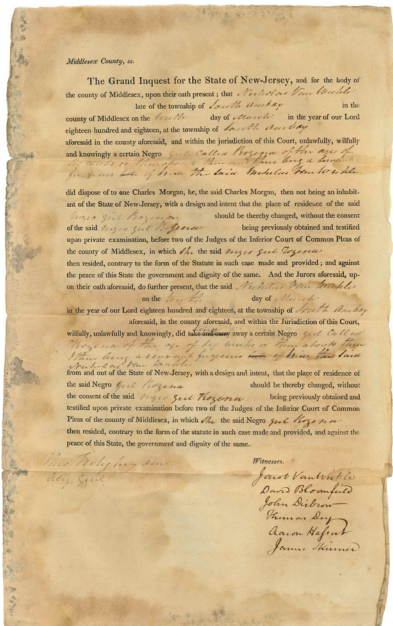 Middlesex County, ss.
The Grand Inquest for the State of New-Jersey, and for the body of
the county of Middlesex, upon their oath present; that Nicholas Van Winkle
late of the township of South Amboy in the
county of Middlesex on the tenth day of March in the year of our Lord
eighteen hundred and eighteen, at the township of South Amboy
aforesaid in the county aforesaid, and within the jurisdiction of this Court, unlawfully, wilfully
and knowingly a certain Negro girl called Rozena of the age of
then being a
the said Nicholas Van Winkle
did dispose of to one Charles Morgan, he, the said Charles Morgan, then not being an inhabit-
ant of the State of New-Jersey, with a design and intent that the place of residence of the said
negro girl Rozena should be thereby changed, without the consent
of the said negro girl Rozena being previously obtained and testified
upon private examination, before two of the Judges of the Inferior Court of Common Pleas of
the county of Middlesex, in which she the said negro girl Rozena
then resided, contrary to the form of the Statute in such case made and provided; and against
the peace of this State the government and dignity of the same. And the Jurors aforesaid, up-
on their oath aforesaid, do further present, that the said Nicholas Van Winkle
on the tenth day of March
in the year of our Lord eighteen hundred and eighteen, at the township of South Amboy
aforesaid, in the county aforesaid, and within the Jurisdiction of this Court,
wilfully, unlawfully and knowingly, did take and carry away a certain Negro girl called
Rozena of the age of
then being a
Nicholas Van Winkle
from and out of the State of New-Jersey, with a design and intent, that the place of residence of
the said Negro girl Rozena should be thereby changed, without
the consent of the said negro girl Rozena being previously obtained and
testified upon private examination before two of the Judges of the Inferior Court of Common
Pleas of the county of Middlesex, in which she the said Negro girl Rozena
then resided, contrary to the form of the statute in such case made and provided, and against the
peace of this State, the government and dignity of the same.
Witnesses.
Jacob Van Winkle
David Bloomfield
John Disbrow
Thomas
Aaron
James Skinner